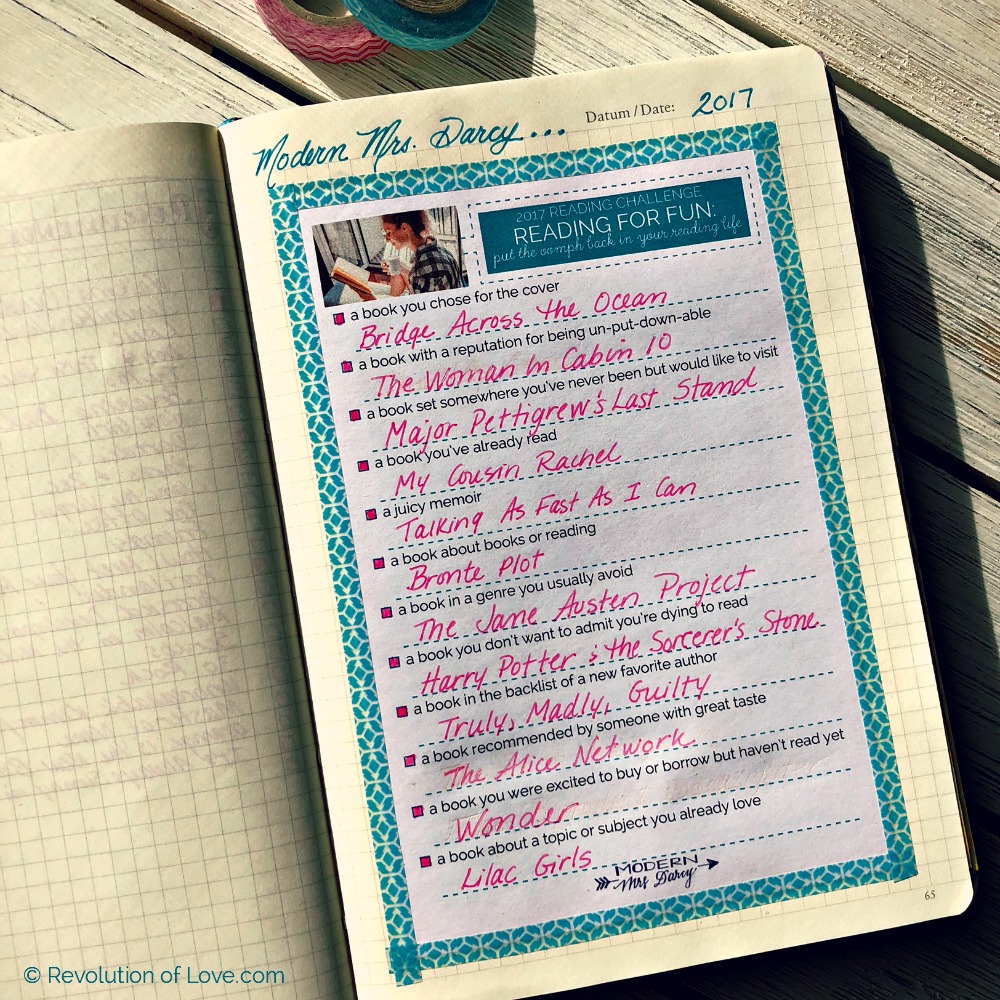 Modern Mrs. Darcy...
Datum / Date: 2017
2017 READING CHALLENGE
READING FOR FUN:
put the oomph back in your reading life
a book you chose for the cover
Bridge Across the Ocean
a book with a reputation for being un-put-down-able
The Woman In Cabin 10
a book set somewhere you've never been but would like to visit
Major Pettigrew's Last Stand
a book you've already read
My Cousin Rachel
a juicy memoir
Talking As Fast As I Can
a book about books or reading
Bronte Plot
a book in a genre you usually avoid
The Jane Austen Project
a book you don't want to admit you're dying to read
Harry Potter & the Sorcerer's Stone
a book in the backlist of a new favorite author
Truly, Madly, Guilty
a book recommended by someone with great taste
The Alice Network
a book you were excited to buy or borrow but haven't read yet
Wonder
a book about a topic or subject you already love
Lilac Girls
MODERN
Mrs Darcy
65
© Revolution of Love.com